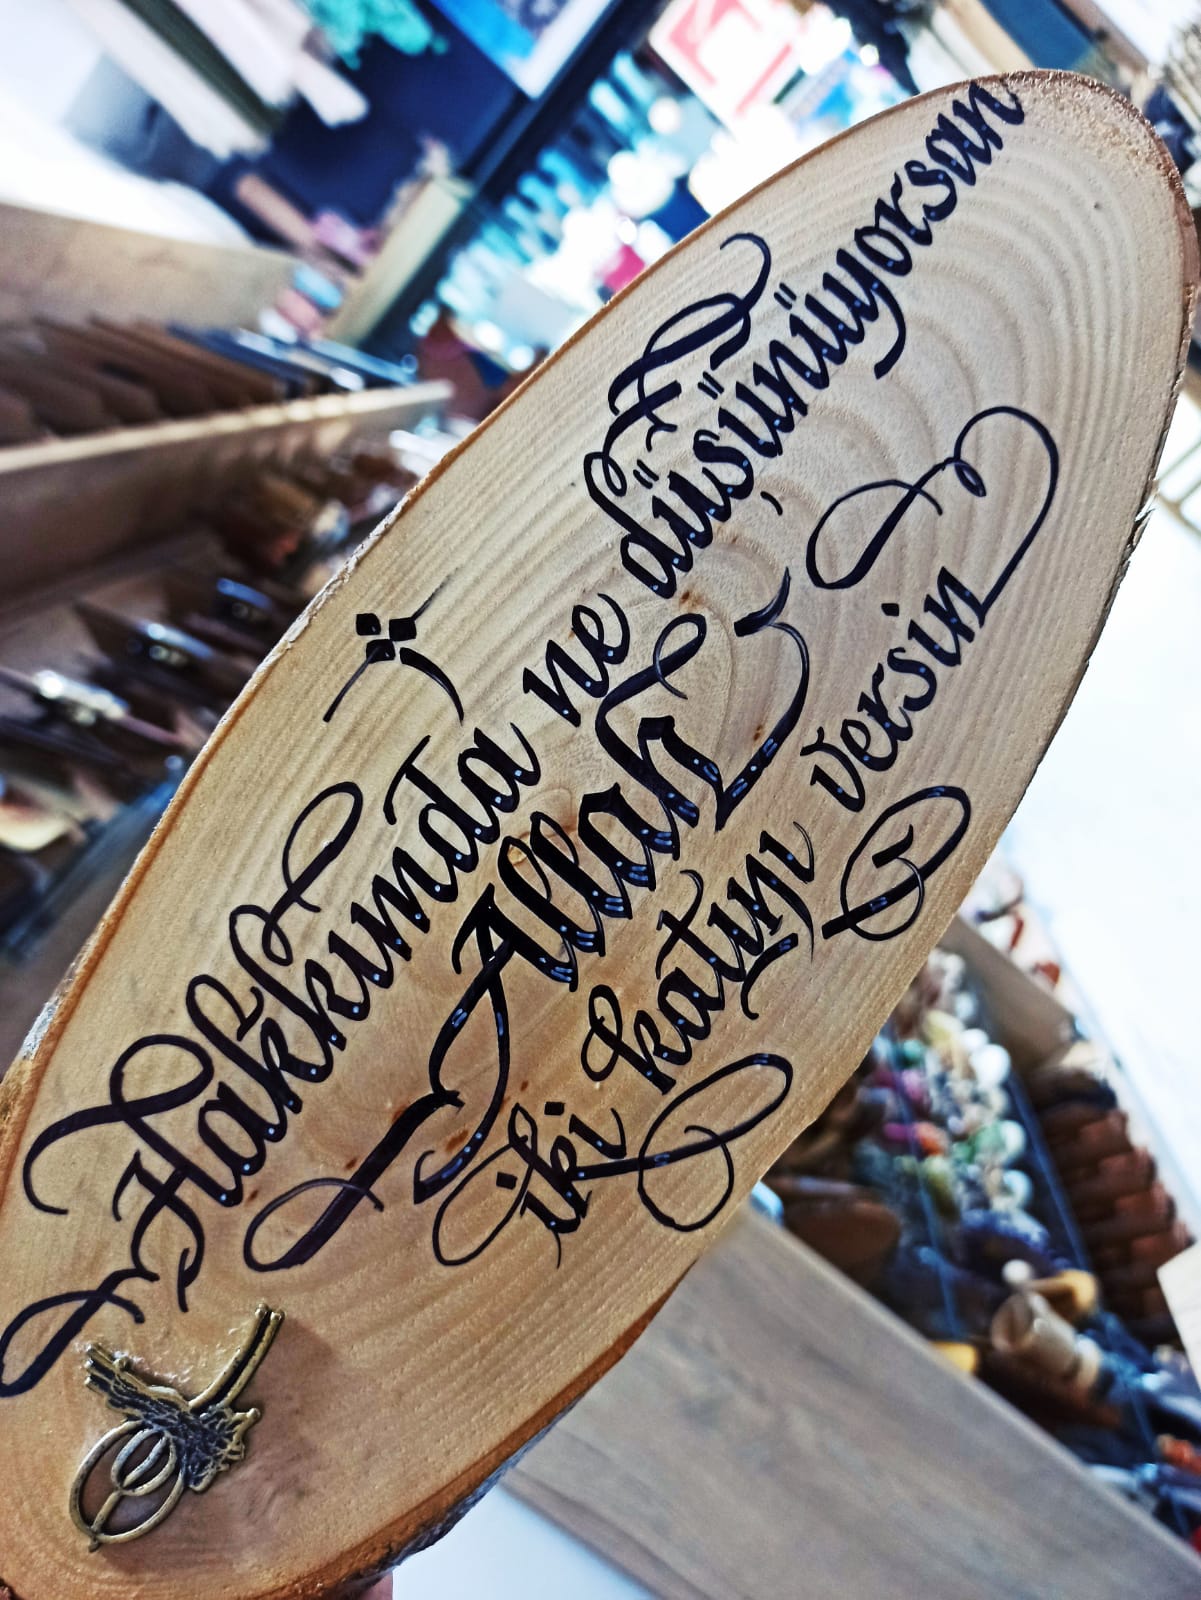 Hakkımda ne düşünüyorsan
Allah
iki katıyı versin